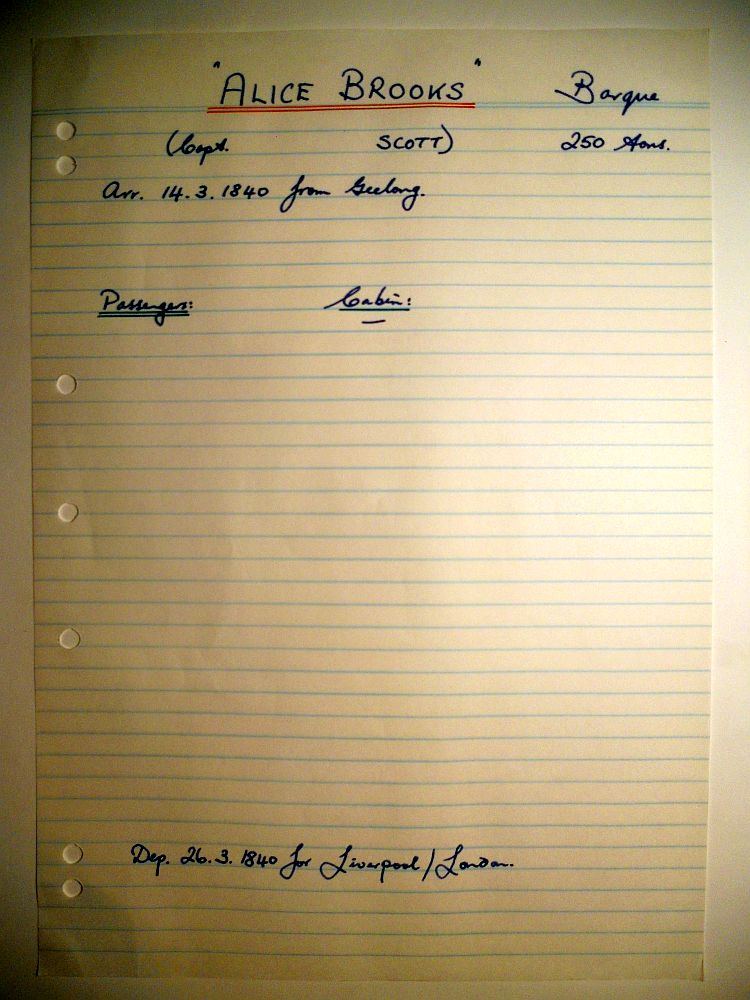 "ALICE BROOKS" Barque
(Capt. SCOTT) 250 tons.
Arr. 14.3.1840 from Geelong.
Passengers: Cabin:
—
Dep. 26.3.1840 for Liverpool/London.